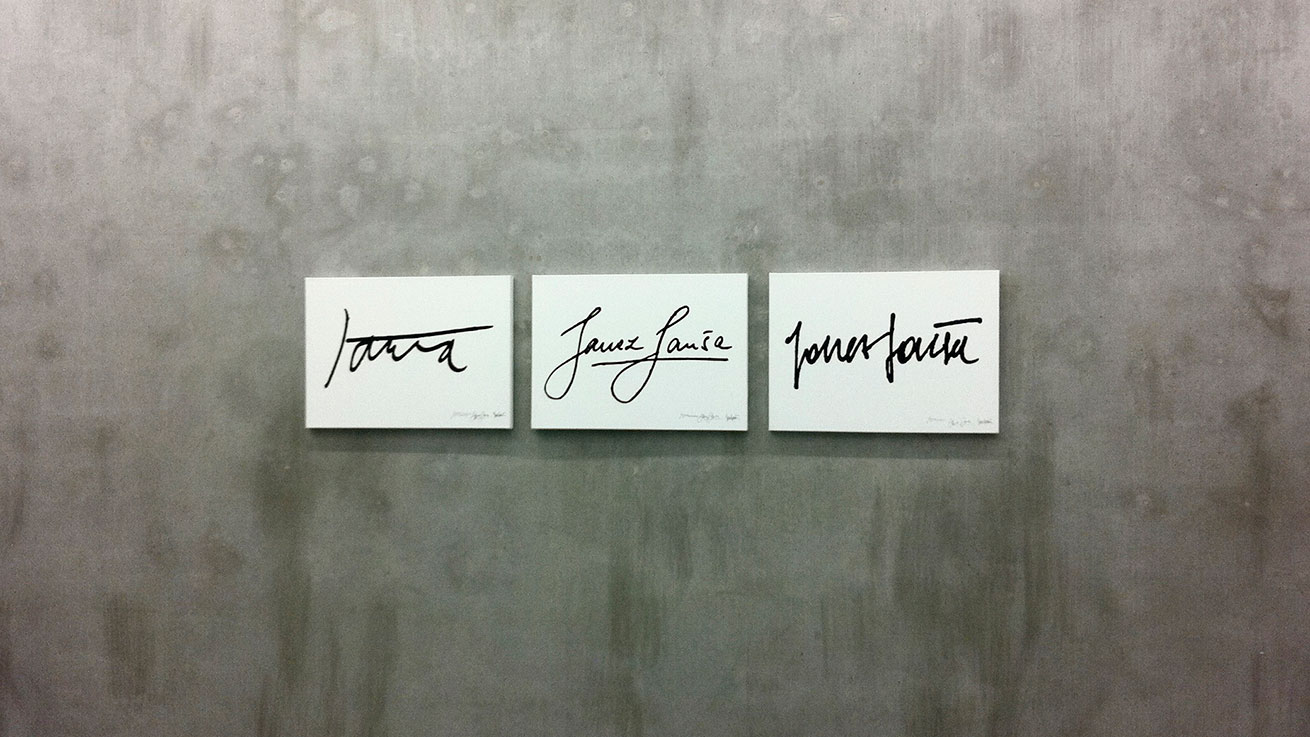 Janša
Janez Janša
Janez Janša